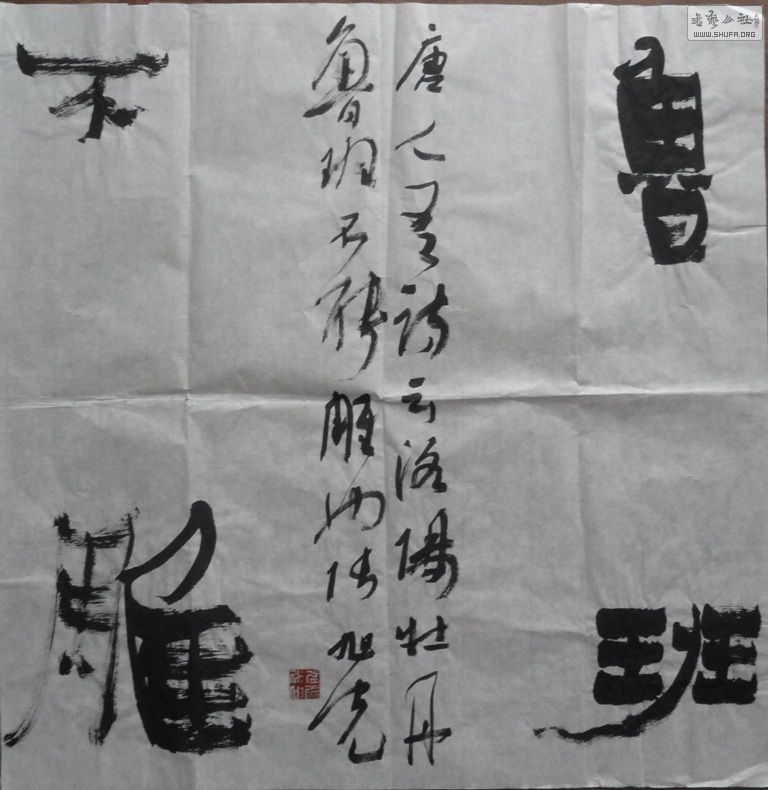 書藝公社
WWW.SHUFA.ORG
魯班
唐人有詩云洛陽牡丹
魯班不能雕也 旭光
不雕